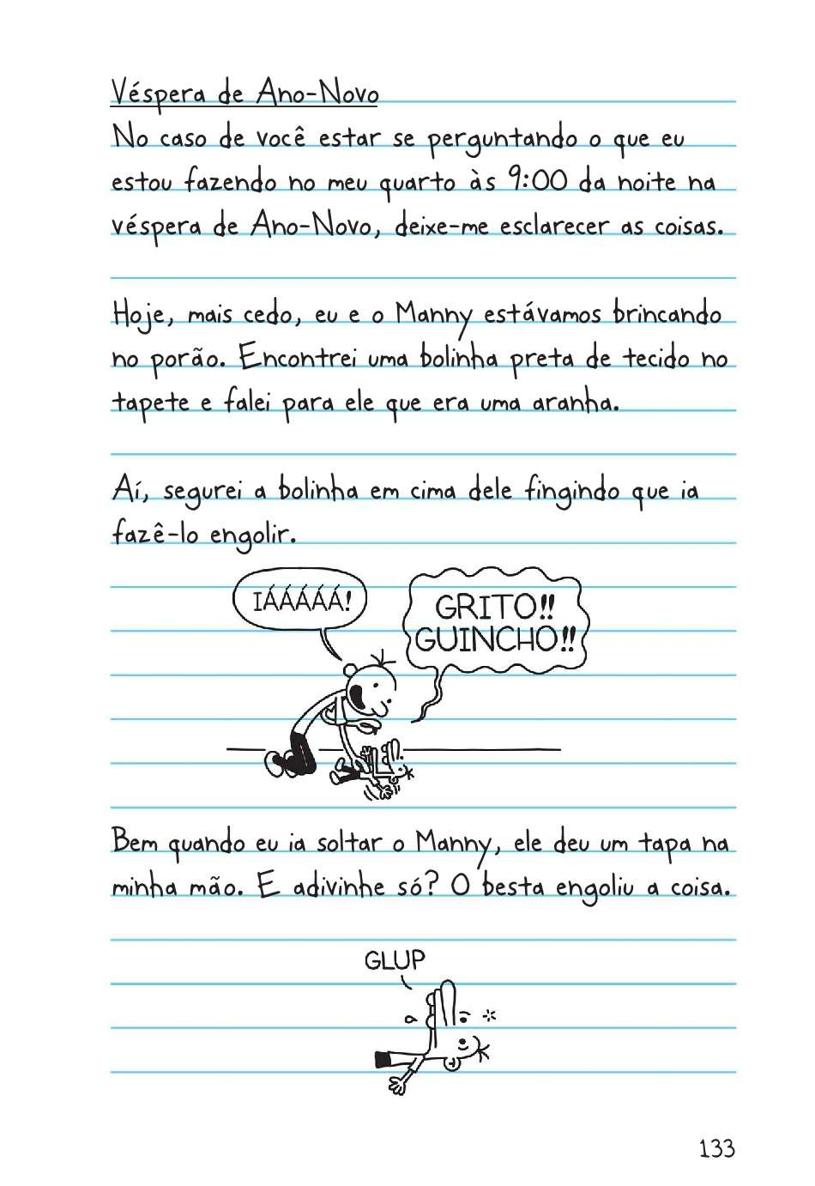 Véspera de Ano-Novo
No caso de você estar se perguntando o que eu
estou fazendo no meu quarto às 9:00 da noite na
véspera de Ano-Novo, deixe-me esclarecer as coisas.
Hoje, mais cedo, eu e o Manny estávamos brincando
no porão. Encontrei uma bolinha preta de tecido no
tapete e falei para ele que era uma aranha.
Aí, segurei a bolinha em cima dele fingindo que ia
fazê-lo engolir.
IÁÁÁÁÁ!
GRITO!!
GUINCHO!!
Bem quando eu ia soltar o Manny, ele deu um tapa na
minha mão. E adivinhe só? O besta engoliu a coisa.
GLUP
133